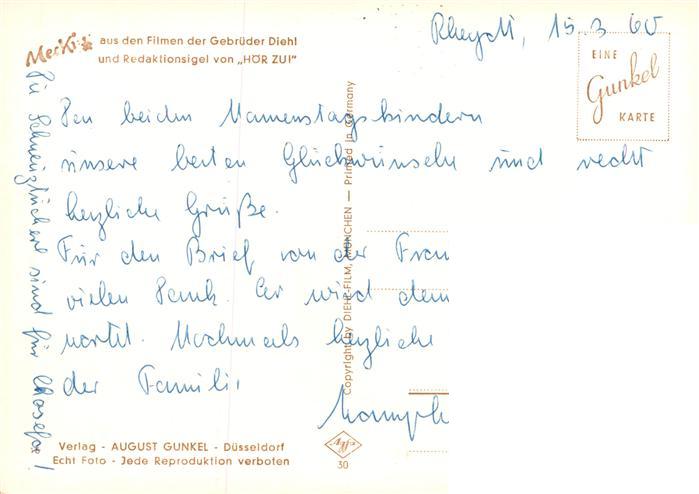 Mecki aus den Filmen der Gebrüder Diehl
und Redaktionsigel von „HÖR ZU!"
Rheydt, 15.3.60
EINE
Gunkel
KARTE
Den beiden Namenstagskindern
unsere besten Glückwünsche und recht
herzliche Grüße.
Für den Brief von der Frau
vielen Dank. Er wird dem
Nochmals herzliche
der Famili
Die Schneuztücherl sind für
Copyright by DIEHL-FILM, MÜNCHEN — Printed in Germany
Verlag - AUGUST GUNKEL - Düsseldorf
Echt Foto - Jede Reproduktion verboten
Agfa
30